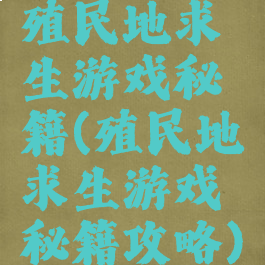 殖民地求
生游戏秘
籍(殖民地
求生游戏
秘籍攻略)